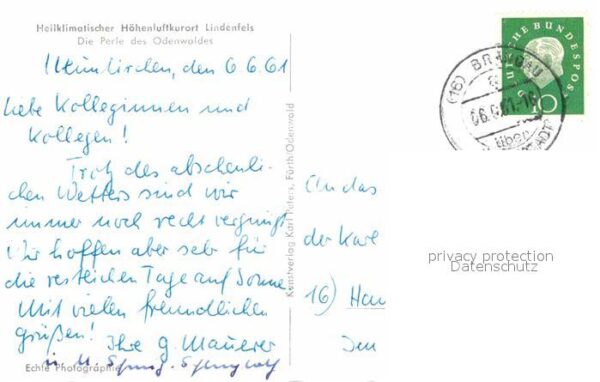 Heilklimatischer Höhenluftkurort Lindenfels
Die Perle des Odenwaldes
Neunkirchen, den 6 6.61
Liebe Kolleginnen und
Kollegen!
Trotz des abscheuli-
chen Wetters sind wir
immer noch recht vergnügt
Wir hoffen aber sehr für
die restlichen Tage auf Sonne
Mit vielen freundlichen
Grüßen!
Ihre G. Mauerer
Echte Photographie
Kunstverlag Karl Peters, Fürth/Odenwald
DEUTSCHE BUNDESPOST
10
(16) BRANDAU
06.6.61.-16
über
An das
der Kare
16) Han
Im
privacy protection
Datenschutz